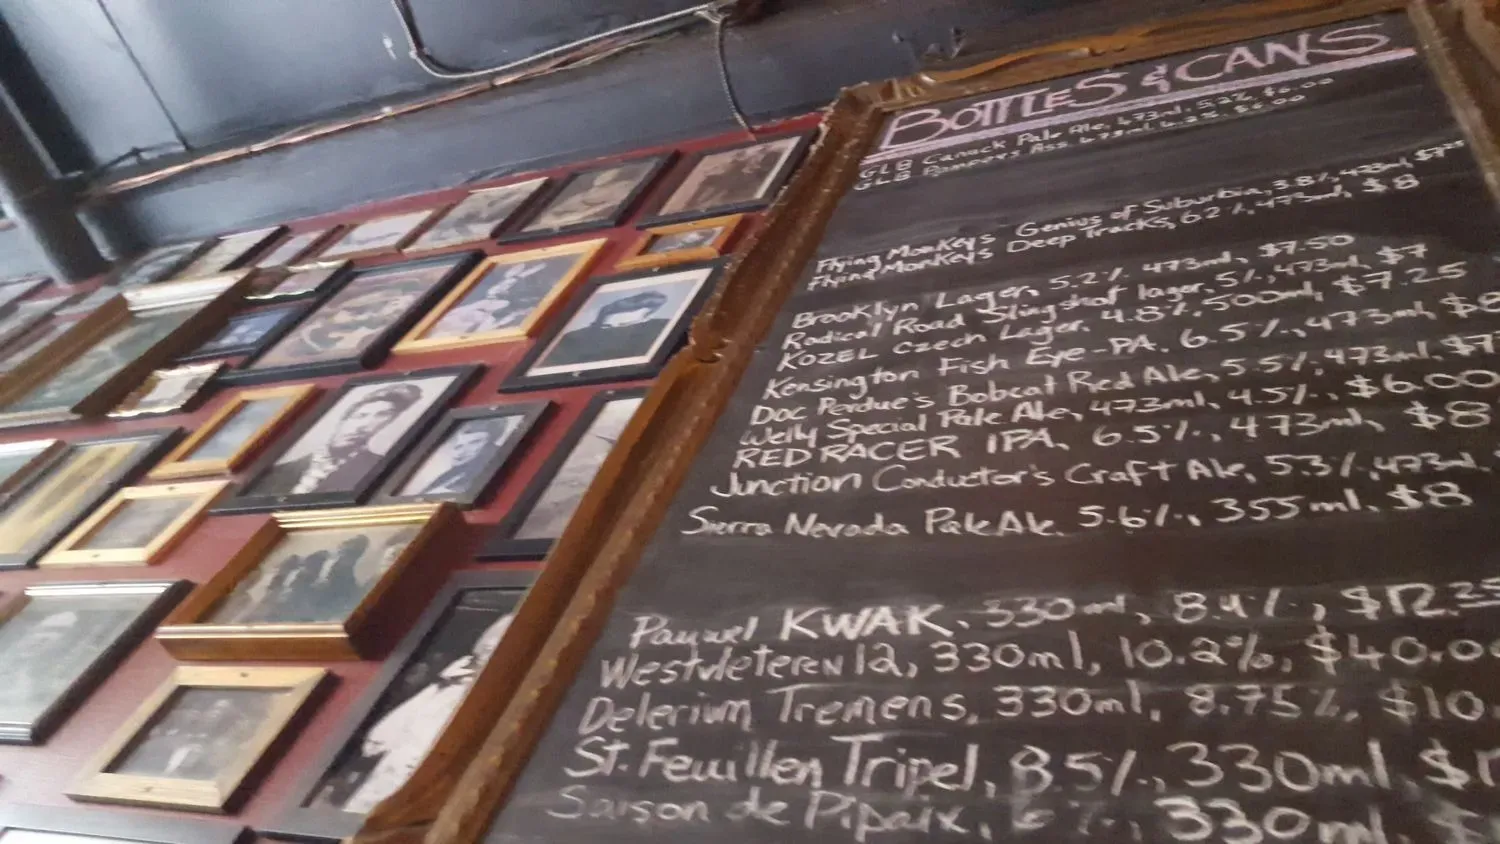 BOTTLES & CANS
GLB Canuck Pale Ale, 473ml, 5.2%, $6.00
GLB Pompous Ass 473ml, 4.2%, $6.00
Flying Monkeys Genius of Suburbia, 3.8%, 473ml, $7
Flying Monkeys Deep Tracks, 6.2%, 473ml, $8
Brooklyn Lager, 5.2%. 473ml, $7.50
Radical Road Slingshot lager, 5%, 473ml, $7
KOZEL Czech Lager, 4.8%. 500ml, $7.25
Kensington Fish Eye-PA. 6.5%, 473ml, $8
Doc Perdue's Bobcat Red Ale, 5.5%, 473ml, $7
Welly Special Pale Ale, 473ml, 4.5%, $6.00
RED RACER IPA, 6.5%, 473ml, $8
Junction Conductor's Craft Ale, 5.3%, 473ml,
Sierra Nevada Pale Ale. 5.6%, 355ml, $8
Pauwel KWAK. 330ml, 8.4%, $12.25
Westvleteren 12, 330ml, 10.2%, $40.00
Delerium Tremens, 330ml, 8.75%, $10.
St. Feuillen Tripel, 8.5%, 330ml, $
Saison de Pipaix, 6%, 330ml, $